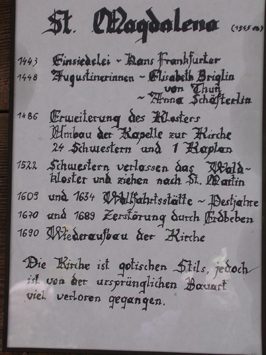 St. Magdalena
1443 Einsiedelei - Hans Frankfurter
1448 Augustinerinnen - Elisabeth Briglin
von Thun
- Anna Schäfterlin
1486 Erweiterung des Klosters
Umbau der Kapelle zur Kirche
24 Schwestern und 1 Kaplan
1522 Schwestern verlassen das Wald-
kloster und ziehen nach St. Martin
1609 und 1634 Wallfahrtsstätte - Pestjahre
1670 und 1689 Zerstörung durch Erdbeben
1690 Wiederaufbau der Kirche
Die Kirche ist gotischen Stils, jedoch
ist von der ursprünglichen Bauart
viel verloren gegangen.